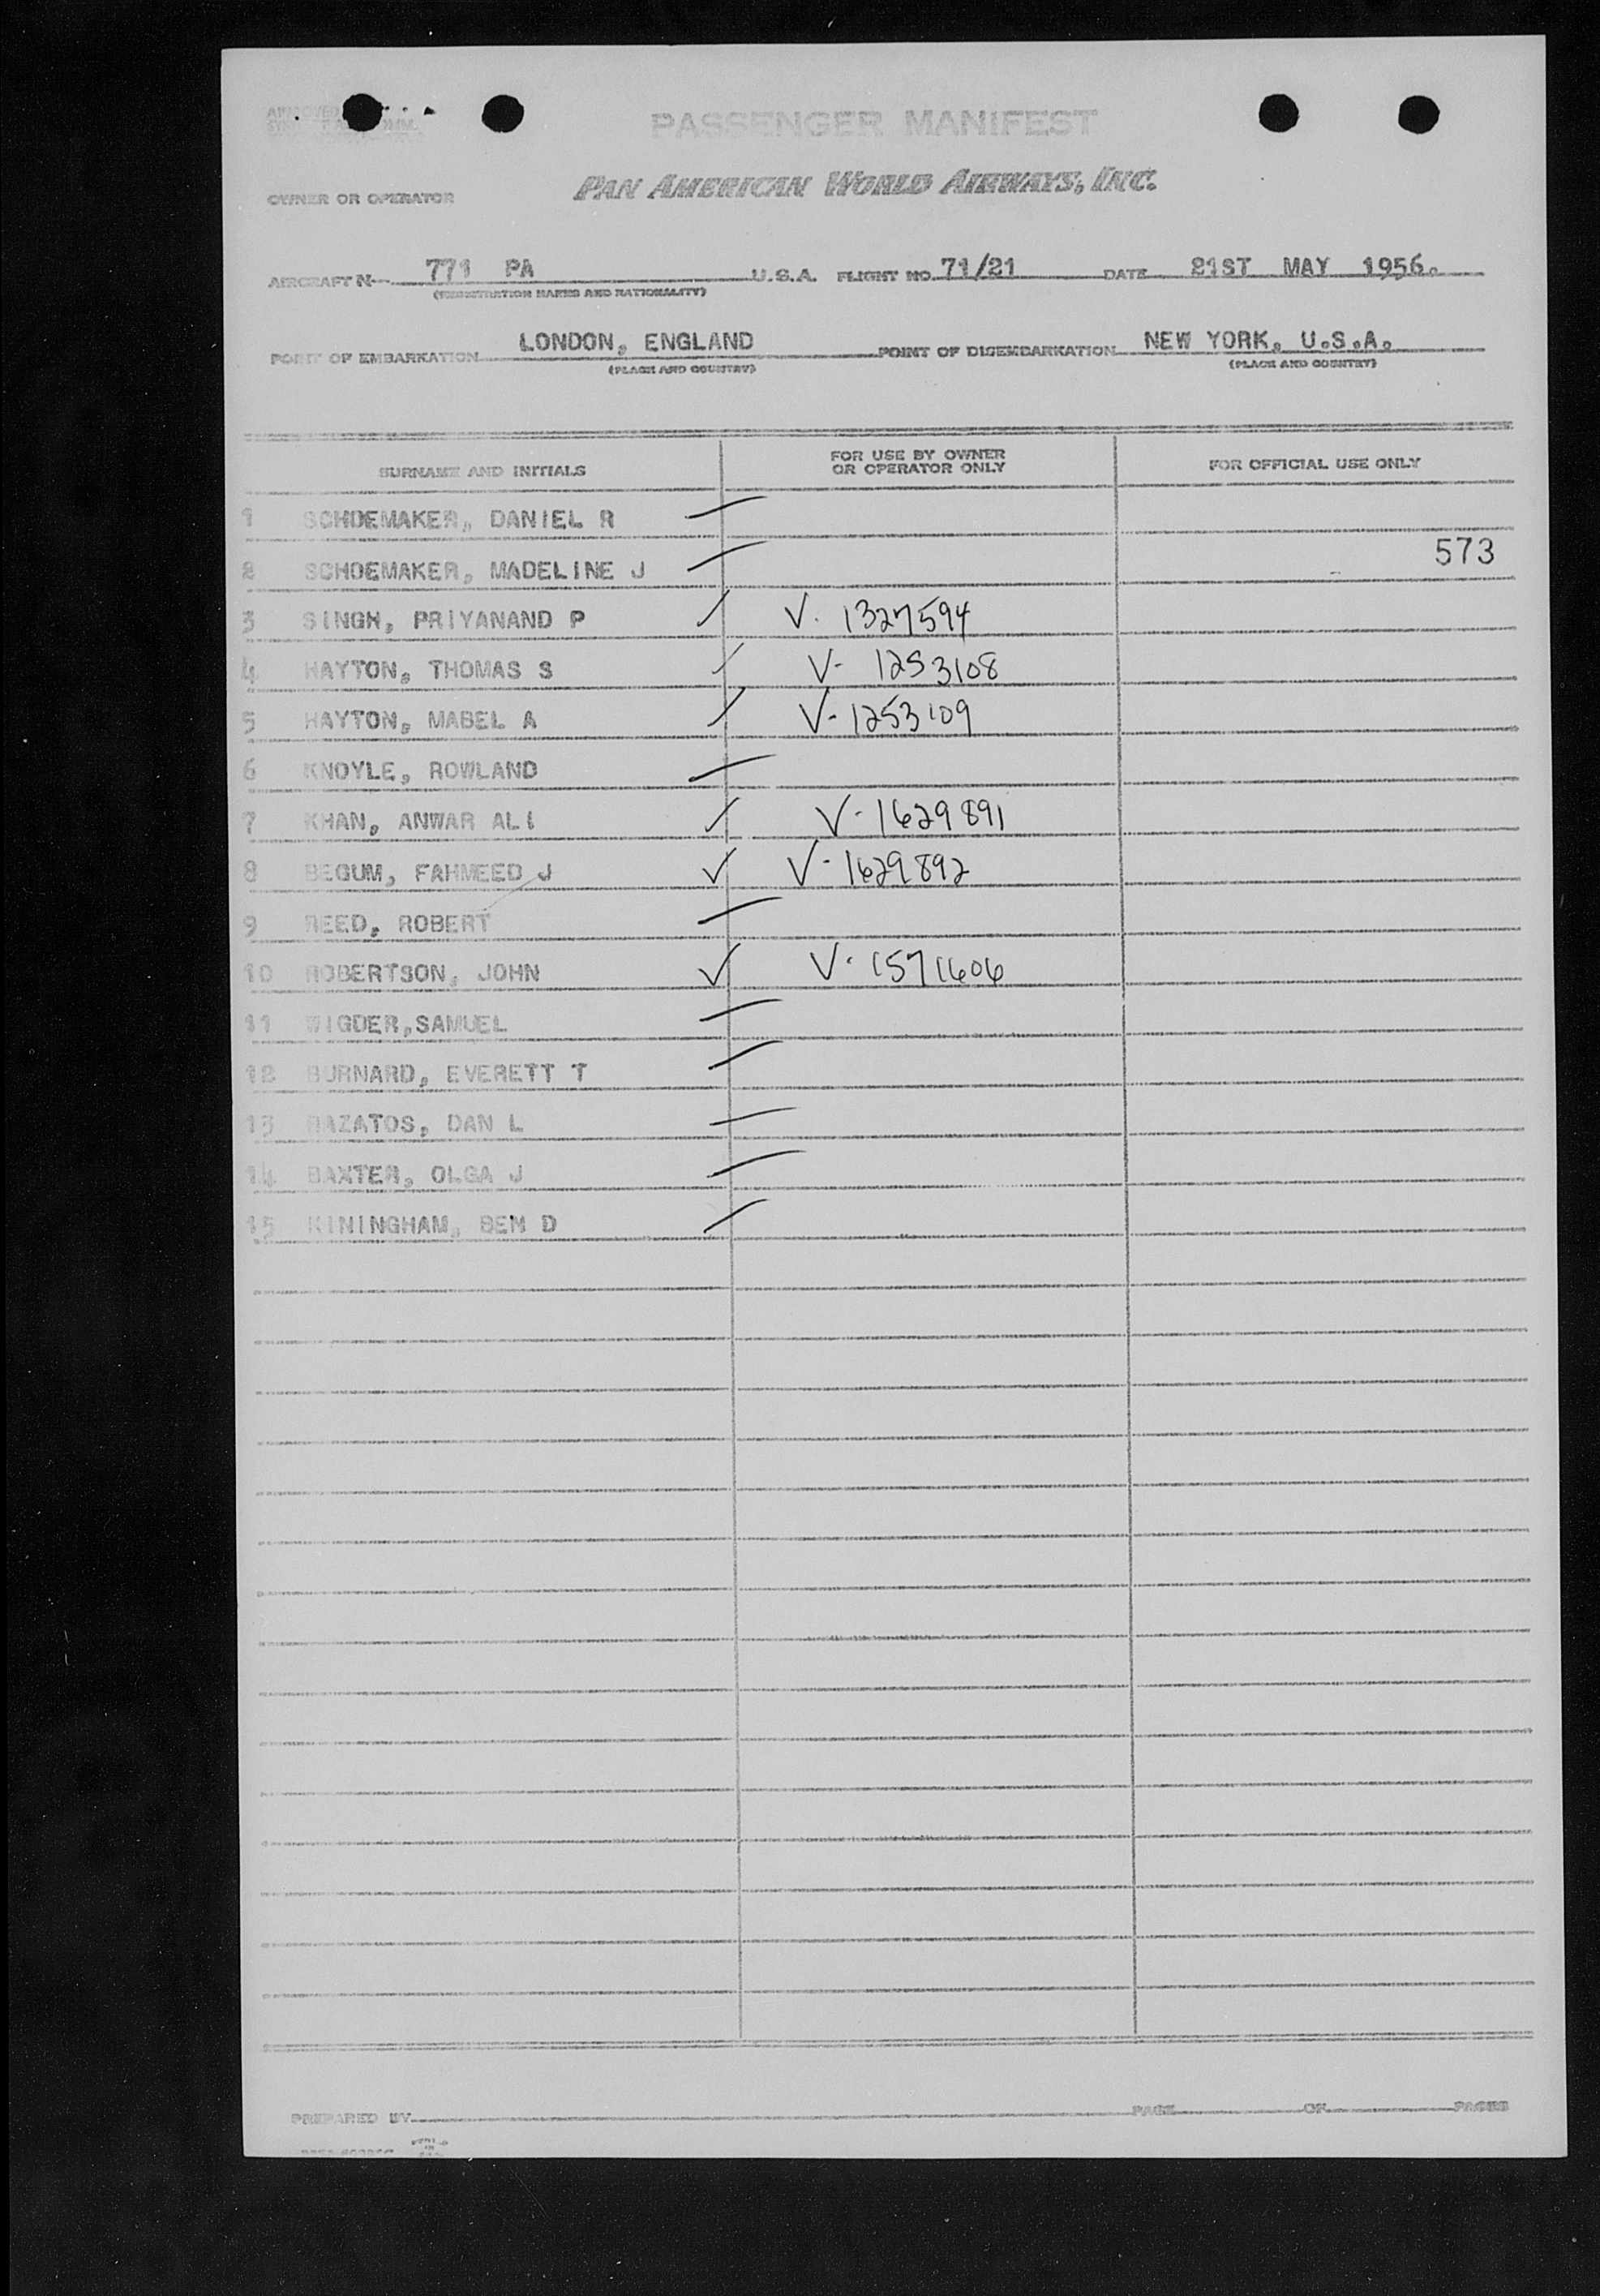 PASSENGER MANIFEST
PAN AMERICAN WORLD AIRWAYS, INC.
OWNER OR OPERATOR
AIRCRAFT No. 771 PA U.S.A. FLIGHT NO. 71/21 DATE 21ST MAY 1956.
(REGISTRATION MARKS AND NATIONALITY)
POINT OF EMBARKATION LONDON, ENGLAND POINT OF DISEMBARKATION NEW YORK, U.S.A.
(PLACE AND COUNTRY) (PLACE AND COUNTRY)
SURNAME AND INITIALS FOR USE BY OWNER OR OPERATOR ONLY FOR OFFICIAL USE ONLY
1 SCHOEMAKER, DANIEL R
573
2 SCHOEMAKER, MADELINE J
3 SINGH, PRIYANAND P ✓ V. 1327594
4 HAYTON, THOMAS S ✓ V- 1253108
5 HAYTON, MABEL A ✓ V-1253109
6 KNOYLE, ROWLAND
7 KHAN, ANWAR ALI ✓ V-1629891
8 BEGUM, FAHMEED J ✓ V-1629892
9 REED, ROBERT
10 ROBERTSON, JOHN ✓ V. 1571606
11 WIGDER,SAMUEL
12 BURNARD, EVERETT T
13 RAZATOS, DAN L
14 BAXTER, OLGA J
15 KININGHAM, BEM D
PREPARED BY PAGE OF PAGES